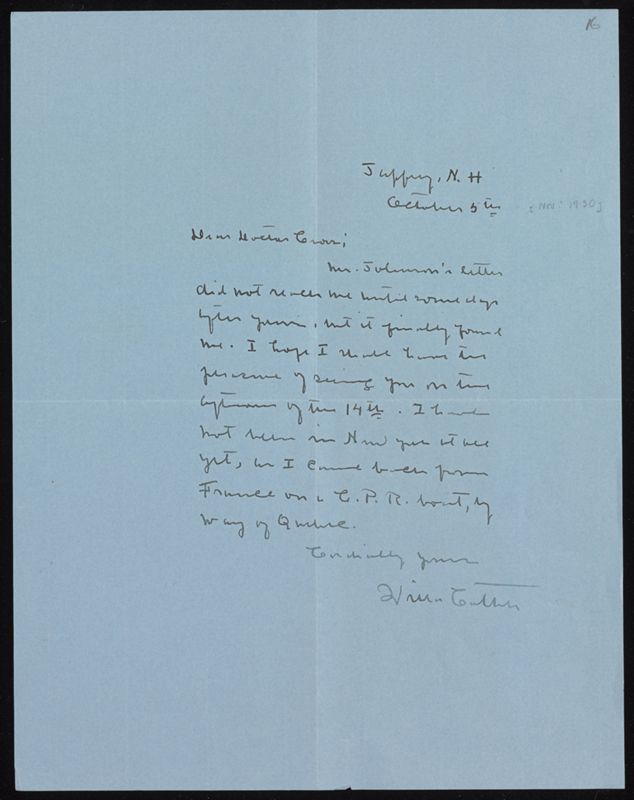 16
Jaffrey, N. H
October 5th
[Nov? 1930]
Dear Doctor Cross;
Mr. Johnson's letter
did not reach me until some days
after yours, but it finally found
me. I hope I shall have the
pleasure of seeing you on the
afternoon of the 14th. I have
not been in New York at all
yet, as I came back from
France on a C. P. R. boat, by
way of Quebec.
Cordially yours
Willa Cather